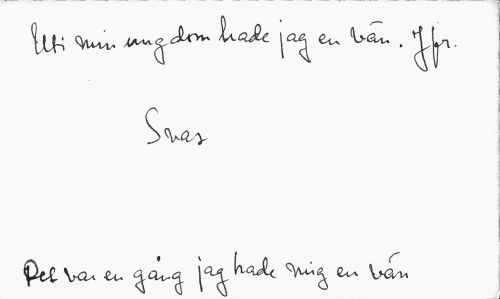 Uti min ungdom hade jag en vän. Jfr.
Svar
Det var en gång jag hade mig en vän